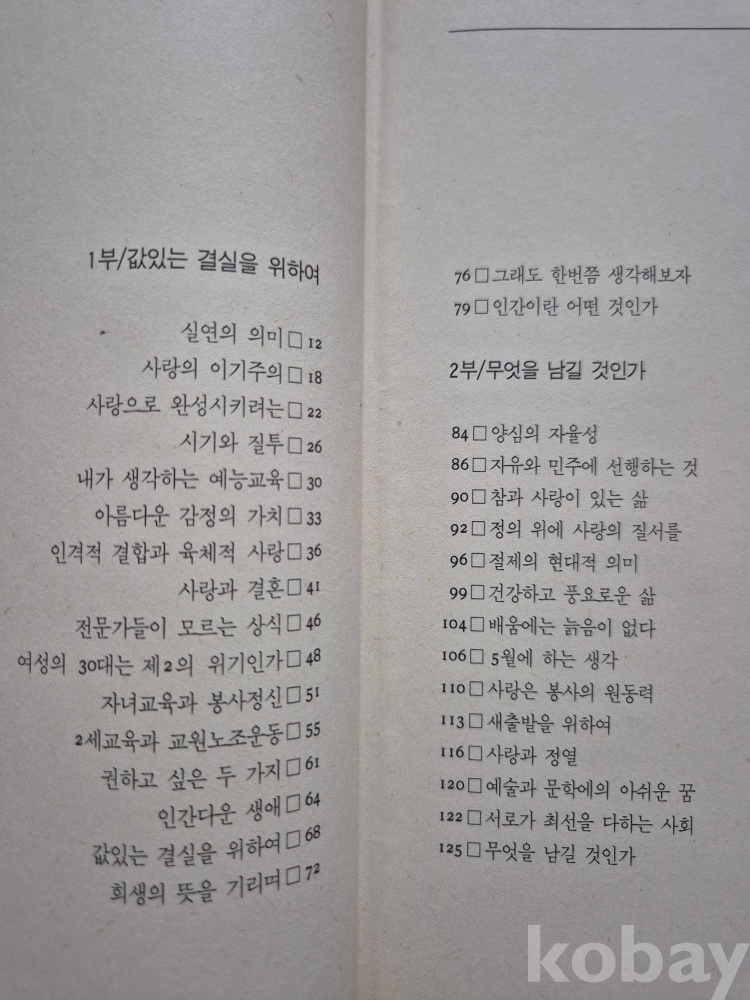 1부/값있는 결실을 위하여
실연의 의미□12
사랑의 이기주의□18
사랑으로 완성시키려는□22
시기와 질투□26
내가 생각하는 예능교육□30
아름다운 감정의 가치□33
인격적 결합과 육체적 사랑□36
사랑과 결혼□41
전문가들이 모르는 상식□46
여성의 30대는 제2의 위기인가□48
자녀교육과 봉사정신□51
2세교육과 교원노조운동□55
권하고 싶은 두 가지□61
인간다운 생애□64
값있는 결실을 위하여□68
희생의 뜻을 기리며□72
76□그래도 한번쯤 생각해보자
79□인간이란 어떤 것인가
2부/무엇을 남길 것인가
84□양심의 자율성
86□자유와 민주에 선행하는 것
90□참과 사랑이 있는 삶
92□정의 위에 사랑의 질서를
96□절제의 현대적 의미
99□건강하고 풍요로운 삶
104□배움에는 늙음이 없다
106□5월에 하는 생각
110□사랑은 봉사의 원동력
113□새출발을 위하여
116□사랑과 정열
120□예술과 문학에의 아쉬운 꿈
122□서로가 최선을 다하는 사회
125□무엇을 남길 것인가
kobay